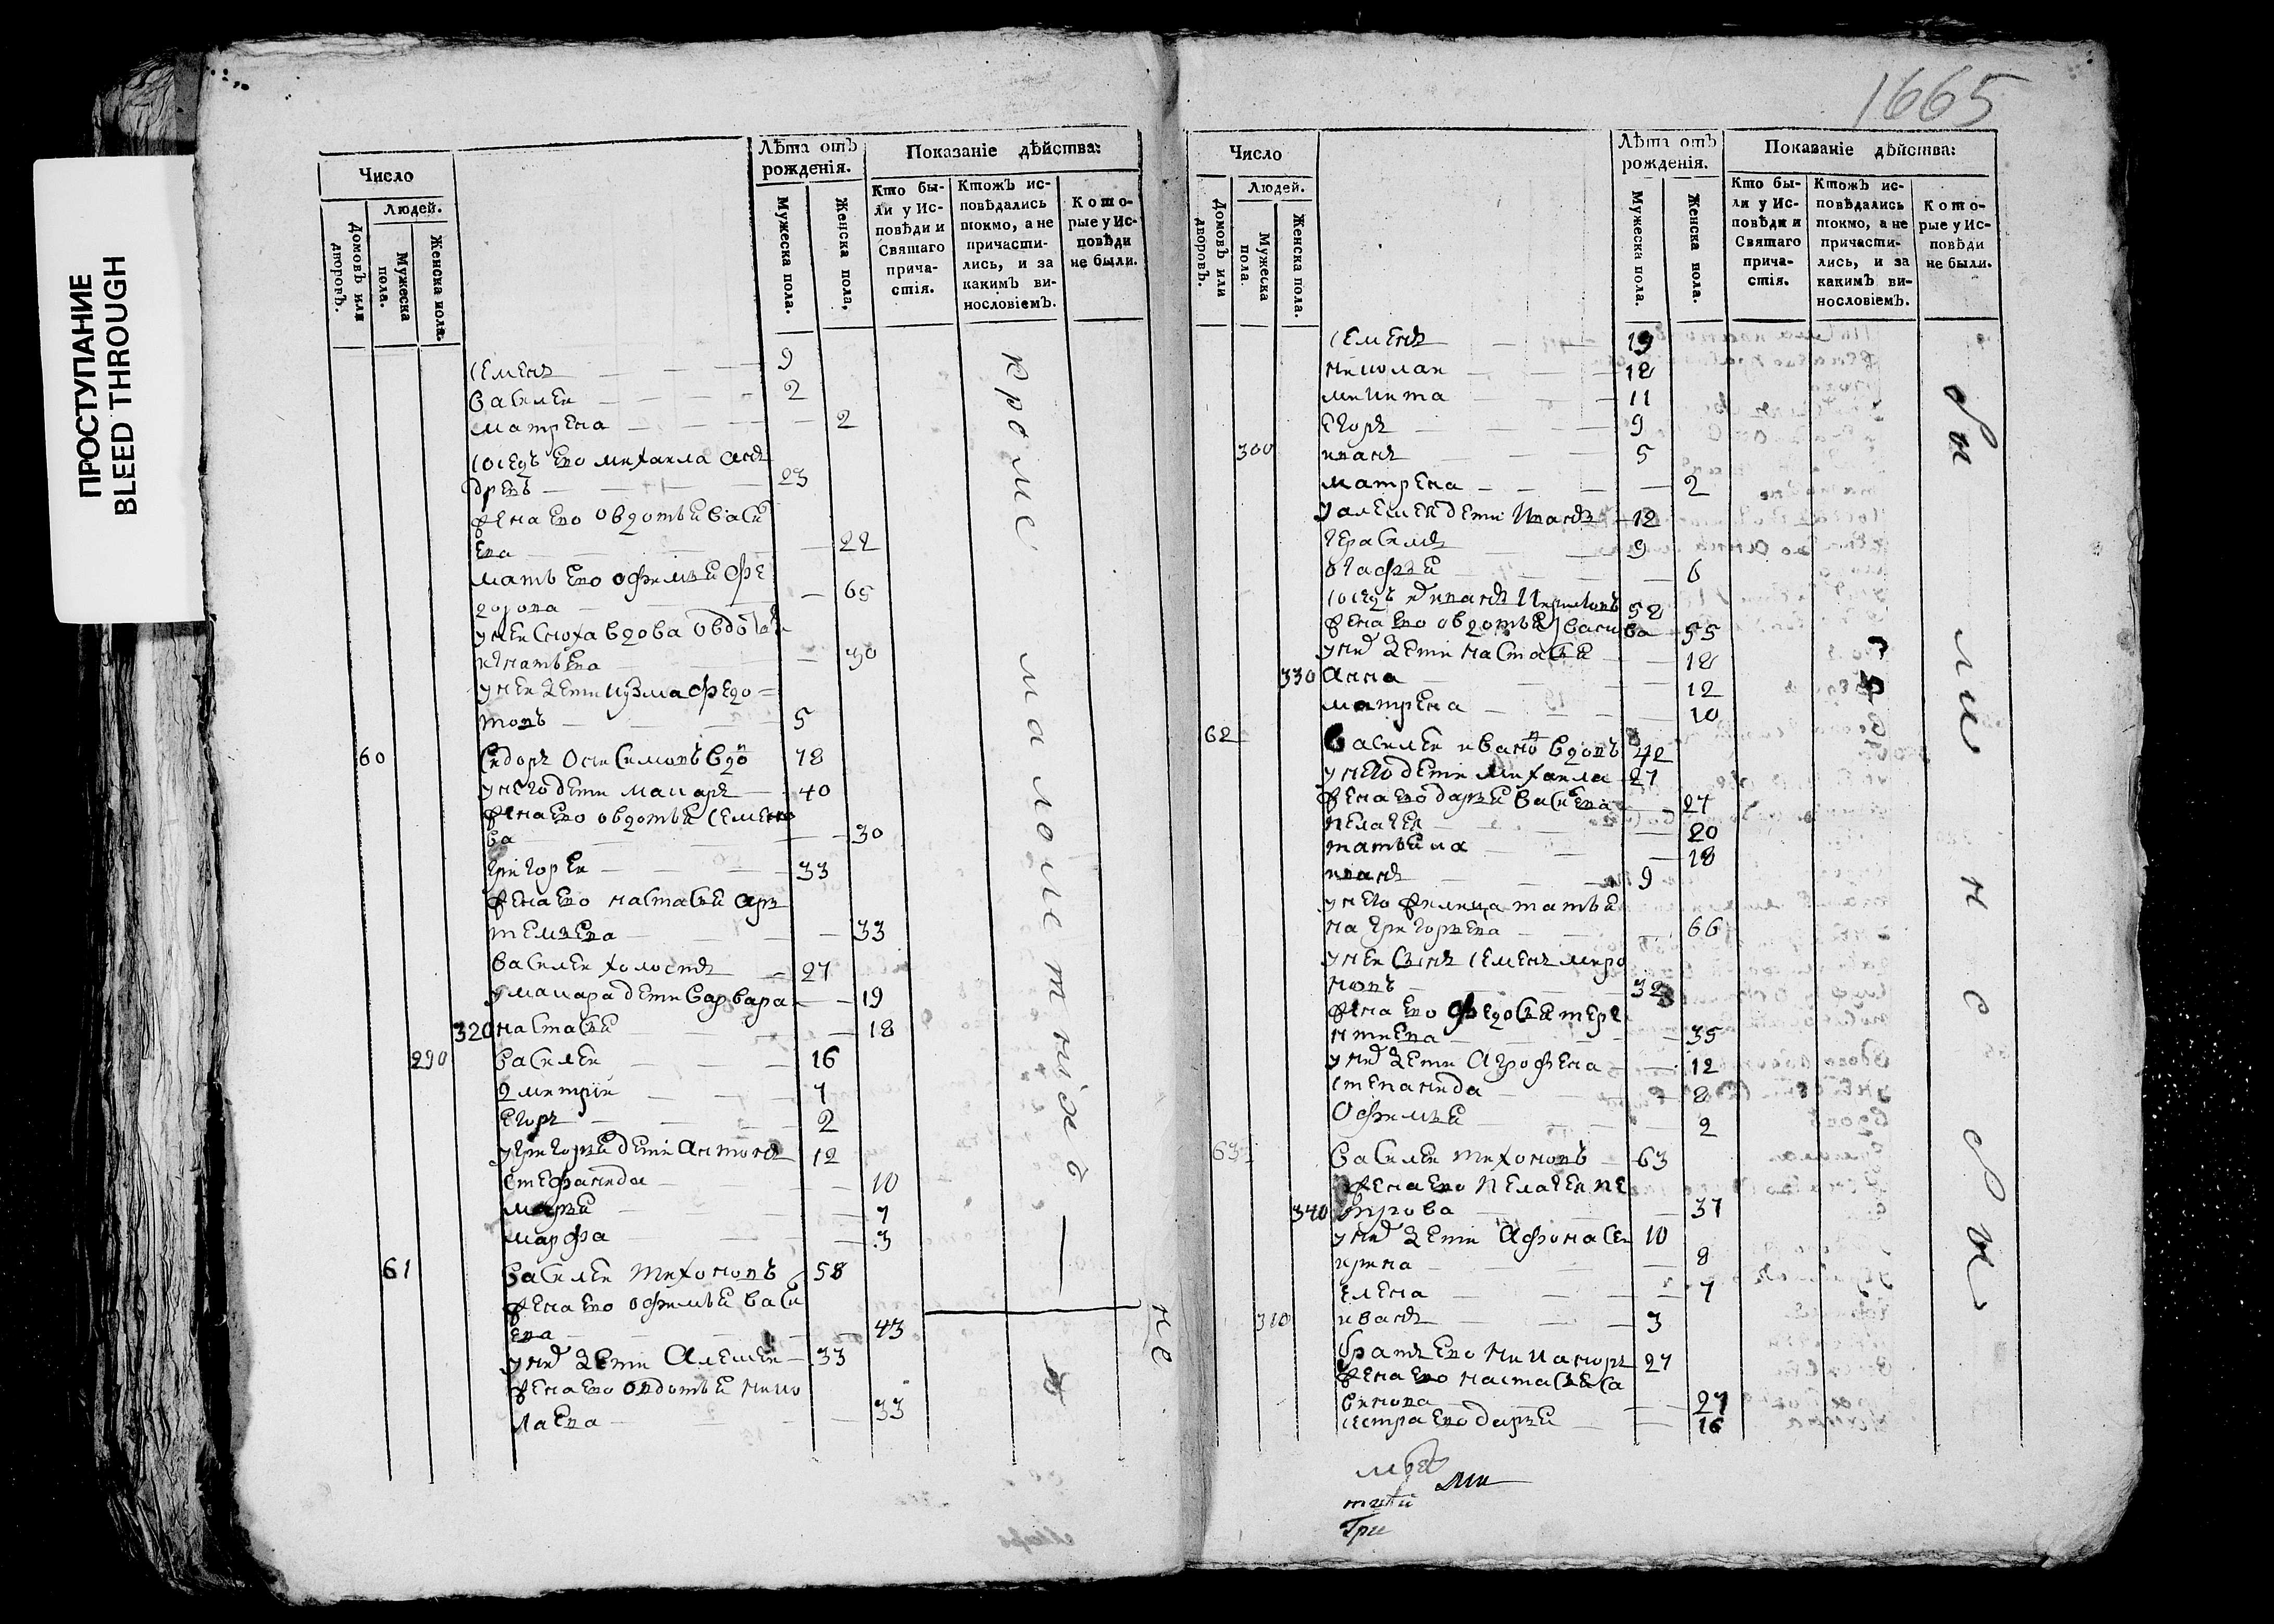 ПРОСТУПАНИЕ
BLEED THROUGH
Число
Людей.
Домовъ или дворовъ.
Мужеска пола.
Женска пола.
Лѣта отъ рожденія.
Мужеска пола.
Женска пола,
Показаніе дѣйства:
Кто бы-
ли у Ис-
повѣди и
Святаго
прича-
стія.
Ктожъ ис-
повѣдались
токмо, а не
причасти-
лись, и за
какимъ ви-
нословіемъ.
Кото-
рые у Ис-
повѣди
не были.
семенъ 9
василеи 2
матрена 2
соседъ ево михаила ан
древъ 23
жена ево овдотья васи
ева 22
мать ево офимья фе
дорова 65
унеи сноха вдова овдотья
игнатьева 30
унеи дети кузма федо
товъ 5
60 сидоръ онисимовъ вдо 78
унего дети макаръ 40
жена ево овдотья семено
ва 30
григореи 33
жена ево настасья ар
темьева 33
василеи холостъ 27
умакара дети варвара 19
320 настасья 18
290 василеи 16
дмитрии 7
егоръ 2
угригорья дети антонъ 12
стефанида 10
марья 7
марфа 3
61 василеи тихоновъ 58
жена ево офимья васи
ева 43
уних дети алексеи 33
жена ево овдотья нико
лаева 33
кроме малолетних
не
1665
Число
Людей.
Домовъ или дворовъ.
Мужеска пола.
Женска пола.
Лѣта отъ рожденія.
Мужеска пола.
Женска пола.
Показаніе дѣйства:
Кто бы-
ли у Ис-
повѣди и
Святаго
прича-
стія.
Ктожъ ис-
повѣдались
токмо, а не
причасти-
лись, и за
какимъ ви-
нословіемъ.
Кото-
рые у Ис-
повѣди
не были.
семенъ 19
николаи 12
микита 11
егоръ 9
300 иванъ 5
матрена 2
уалексея дети иванъ 12
герасимъ 9
огафья 6
52
жена ево овдотья васи ва 55
уних дети настасья 12
330 анна 12
матрена 10
62 василеи иванов вдовъ 42
унего дети михаила 27
жена ево дарья васиева 27
пелагея 20
татьяна 18
иванъ 9
унего жилица татья
на григорьева 66
унеи сынъ семенъ миро
новъ 32
жена ево федосья тере
нтиева 35
уних дети агрофена 12
степанида 8
офимья 2
63 василеи тихоновъ 63
жена ево пелагея пе
340 трова 37
уних дети афонасеи 10
ирина 8
елена 7
310 иванъ 3
братъ ево никаноръ 27
жена ево настасья са
винова 27
сестра ево дарья 16